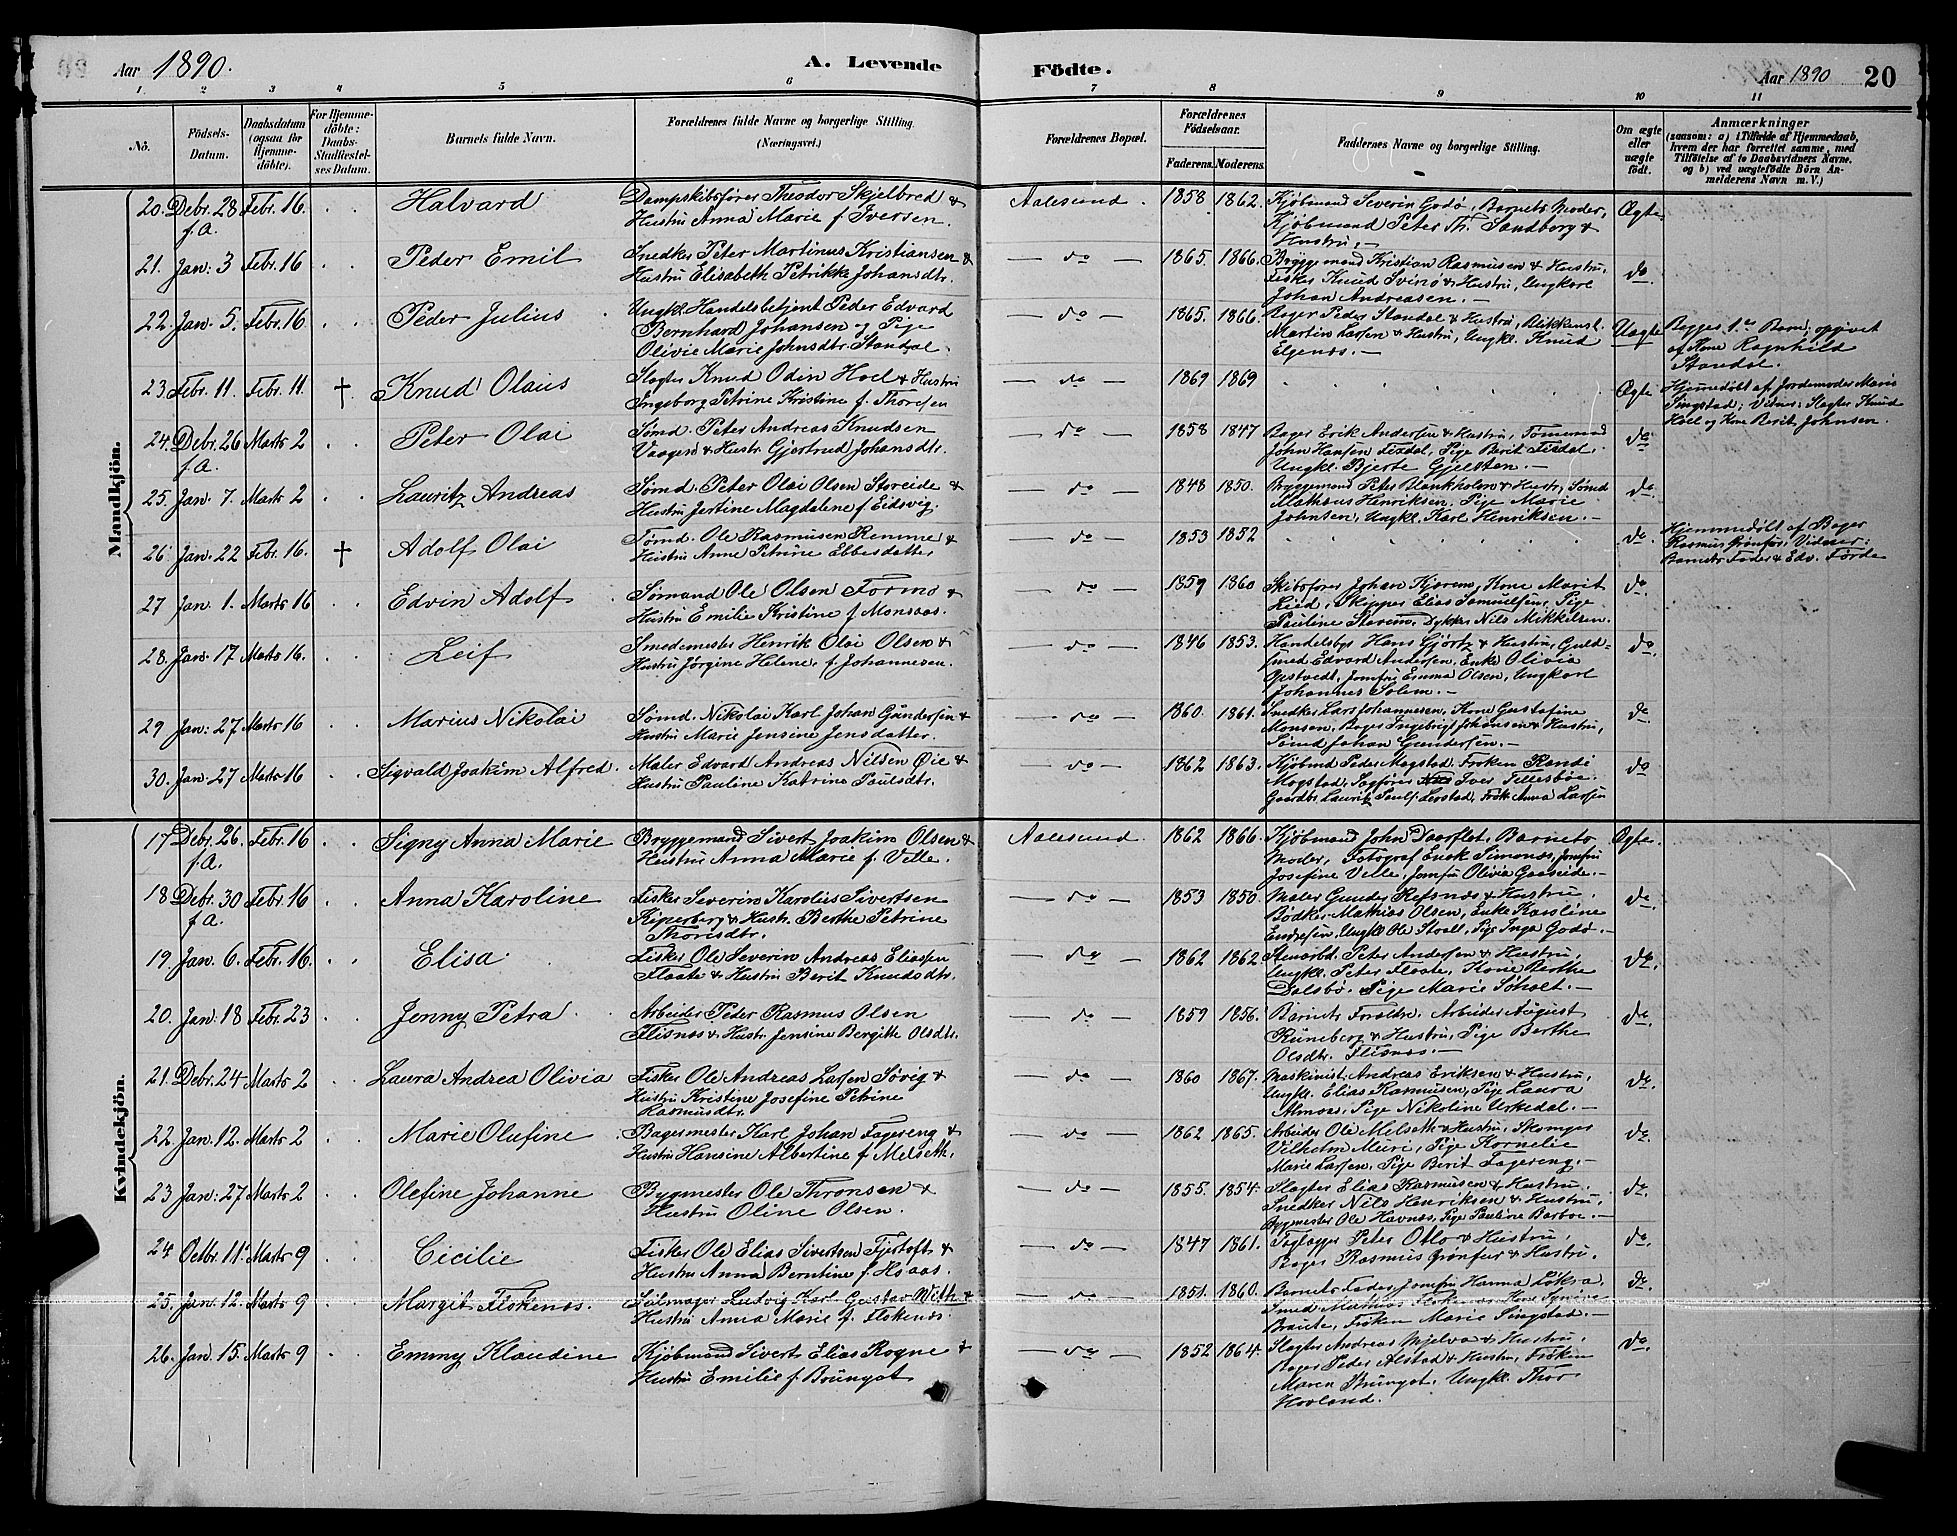 Aar 1890. A. Levende Födte. Aar 1890 20
1 2 3 4 5 6 7 8 9 10 11
No. Födsels-Datum. Daabsdatum (ogsaa for Hjemmedöbte). For Hjemmedöbte: Daabs-Stadfæstelses Datum. Barnets fulde Navn. Forældrenes fulde Navne og borgerlige Stilling. (Næringsvei.) Forældrenes Bopæl. Forældrenes Födselsaar. Faderens. Moderens. Faddernes Navne og borgerlige Stilling. Om ægte eller uægte födt. Anmærkninger
(saasom: a) i Tilfælde af Hjemmedaab,
hvem der har forrettet samme, med
Tilföielse af to Daabsvidners Navne.
og b) ved uægtefödte Börn An-
melderens Navn m. V.)
Mandkjön.
20. Debr. 28 f.A. Febr. 16. Halvard Dampskibsfører Theodor Skjelbred &
Hustru Anna Marie f. Iversen. Aalesund. 1858 1862. Kjøbmand Severin Godø, Barnets Moder,
Kjøbmand Peter Th. Sandborg &
Hustru.— Ægte
21. Jan. 3 Febr. 16 Peder Emil Snedker Peter Martinus Kristiansen &
Hustru Elisabeth Petrikke Johansdtr. — do — 1865. 1866. Bryggemand Kristian Rasmusen & Hustru,
Fisker Knud Svinø & Hustru, Ungkarl
Johan Andreasen.— do.
22. Jan. 5. Febr. 16 Peder Julius Ungkl. Handelsbetjent Peder Edvard
Bernhard Johansen og Pige
Olivie Marie Johnsdtr. Standal. — do — 1865. 1866. Bager Peder Standal & Hustru, Blikkensl.
Martin Larsen & Hustru, Ungkl. Knud
Elgenæs.— Uægte Begges 1ste Barn; opgivet
af Kone Ragnhild
Standal.
23. Febr. 11. Febr. 11. † Knud Olaus Slagter Knud Odin Hoel & Hustru
Ingeborg Petrine Kristine f. Thoresen — do — 1869 1869 Ægte Hjemmedøbt af Jordemoder Marie
Singstad; Vidner: Slagter Knud
Hoel og Kone Berit Johnsen.
24. Debr. 26 f.A. Marts 2 Peter Olai Sømd. Peter Andreas Knudsen
Vaagen & Hustr. Gjertrud Johansdtr. — do — 1858 1847 Bager Erik Andersen & Hustru, Tømmermd
John Hansen Fixdal, Pige Berit Fixdal,
Ungkl. Bjerte Gjelsten.— do.
25. Jan. 7. Marts 2 Lauritz Andreas Sømd. Peter Olai Olsen Storeide &
Hustru Jertine Magdalene f. Eidsvig. — do — 1848 1850. Bryggemand Peter Blankholm & Hustr., Sømd
Mathæus Henriksen, Pige Marie
Johnsen, Ungkl. Karl Henriksen.— do.
26. Jan. 22 Febr. 16. † Adolf Olai Tømd. Ole Rasmusen Remme &
Hustru Anne Petrine Ebbesdatter — do — 1853 1852 do. Hjemmedøbt af Bager
Rasmus Grønfur; Vidner:
Barnets Fader & Edv. Førde
27 Jan. 1. Marts 16 Edvin Adolf Sømand Ole Olsen Formo &
Hustru Emilie Kristine f. Monsaas. — do — 1859 1860 Skibsfører Johan Kjørem, Kone Marit
Lied, Skipper Elias Samuelsen, Pige
Pauline Stavem, Dykker Nils Mikkelsen. do.
28. Jan. 17 Marts 16. Leif Smedemester Henrik Olai Olsen &
Hustru Jørgine Helene f. Johannesen. — do — 1846 1853. Handelsbgr Hans Gjørtz & Hustru, Guld-
smed Edvard Andersen, Enke Olivia
Opstvedt, Jomfru Emma Olsen, Ungkarl
Johannes Solem.— do.
29 Jan. 27 Marts 16 Marius Nikolai Sømd. Nikolai Karl Johan Gundersen &
Hustru Marie Jensine Jensdatter. — do — 1860. 1861. Snedker Lars Johannesen, Kone Gustafine
Monsen, Bager Ingebrigt Johansen & Hustru,
Sømd Johan Gundersen.— do
30. Jan. 27 Marts 16 Sigvald Joakim Alfred. Maler Edvard Andreas Nilsen Øie &
Hustru Pauline Katrine Paulsdtr. — do — 1862 1863. Kjøbmd Peder Mogstad, Frøken Randi
Mogstad, Sagfører Iver Tillesbøe.
Gaardbr. Lauritz Pauls. Lerstad, Frøk. Anna Larsen do
Kvindekjön.
17 Debr. 26. f.A. Febr. 16 Signy Anna Marie Bryggemand Sivert Joakim Olsen &
Hustru Anna Marie f. Velle. Aalesund. 1862 1866. Kjøbmand John Daaflot, Barnets
Moder, Fotograf Enok Simonæs, Jomfru
Josefine Velle, Jomfru Olivia Gaaseide.— Ægte.
18 Debr. 30 f.A. Febr. 16 Anna Karoline Fisker Severin Karolius Sivertsen
Kiperberg & Hustr. Berthe Petrine
Thoresdtr. — do — 1853 1850. Maler Gunder Refsnæs & Hustru,
Bødker Mathias Olsen, Enke Karoline
Endresen, Ungkl. Ole Stoall, Pige Inga Godø.— do.
19 Jan. 6. Febr. 16. Elisa Fisker Ole Severin Andreas Eliassen
Flaate & Hustru Berit Knudsdtr. — do — 1862 1862 Stenarbd. Peter Andersen & Hustru,
Ungkl. Peter Flaate, Kone Berthe
Dalsbø, Pige Marie Søholt.— do.
20. Jan. 18 Febr. 23 Jenny Petra Arbeider Peder Rasmus Olsen
Flisnæs & Hustr. Jensine Bergitte Olsdtr. — do — 1859 1856. Barnets Forældre, Arbeider August
Runeberg & Hustru, Pige Berthe
Olsdtr. Flisnæs.— do.
21. Debr. 24 Marts 2 Laura Andrea Olivia Fisker Ole Andreas Larsen Søvig &
Hustru Kristine Josefine Petrine
Rasmusdtr. — do — 1860 1867. Maskinist Andreas Eriksen & Hustru,
Ungkl. Elias Rasmusen, Pige Laura
Almaas, Pige Nikoline Urkedal.— do.
22. Jan. 12. Marts 2 Marie Olufine Bagermester Karl Johan Fagereng &
Hustru Hansine Albertine f. Melseth. — do — 1862 1865. Arbeider Ole Melseth & Hustru, Skomager
Vilhelm Muri, Pige Kornelie
Marie Larsen, Pige Berit Fagereng.— do.
23 Jan. 27 Marts 2 Olefine Johanne Bygmester Ole Thronsen &
Hustru Oline Olsen. — do — 1855. 1854. Slagter Elias Rasmusen & Hustru,
Snedker Nils Henriksen & Hustru,
Bygmester Ole Havnæs, Pige Pauline Barboe.— do.
24 Octbr. 11. Marts 9 Cicilie Fisker Ole Elias Sivertsen Fjertoft &
Hustru Anna Berntine f. Haaas. — do — 1847 1861. Taglægger Peter Otlo & Hustru,
Bager Rasmus Grønfur & Hustru. do.
25. Jan. 12. Marts 9 Margit Flokenæs. Seilmager Ludvig Karl Gustav With &
Hustru Anna Marie f. Flokenæs. — do — 1851. 1860. Barnets Fader, Jomfru Hanna Løksa,
Smed Mathias Flokenæs, Kone Synøve
Braute, Frøken Marie Singstad.— do.
26. Jan. 15. Marts 9 Emmy Klaudine Kjøbmand Sivert Elias Rogne &
Hustru Emilie f. Brungot — do — 1852 1864. Slagter Andreas Mjelva & Hustru,
Bager Peder Alstad & Hustru, Frøken
Maren Brungot, Ungkl. Thor
Hovland. do.